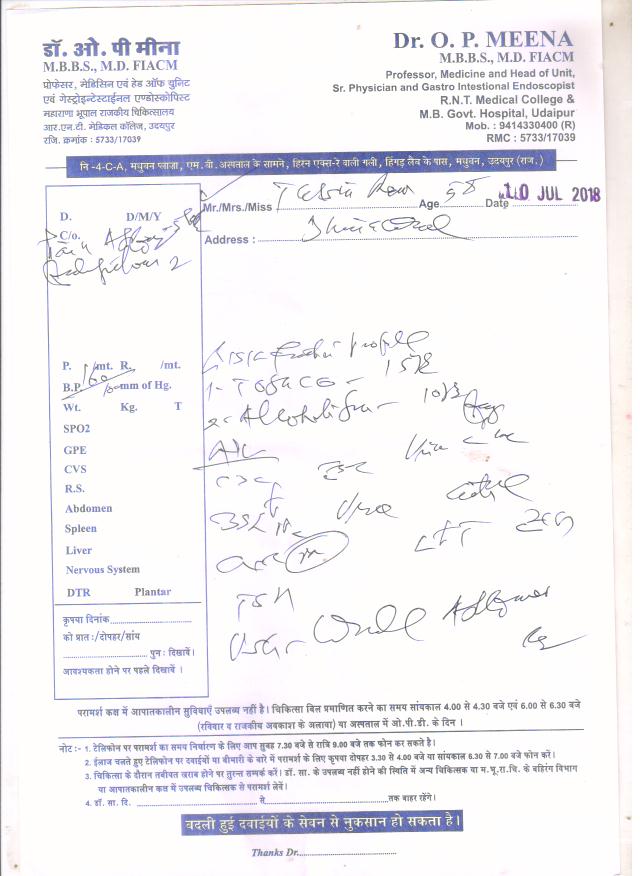 डॉ. ओ. पी मीना
M.B.B.S., M.D. FIACM
प्रोफेसर, मेडिसिन एवं हेड ऑफ यूनिट
एवं गेस्ट्रोइन्टेस्टाईनल एण्डोस्कोपिस्ट
महाराणा भूपाल राजकीय चिकित्सालय
आर.एन.टी. मेडिकल कॉलेज, उदयपुर
रजि. क्रमांक : 5733/17039
Dr. O. P. MEENA
M.B.B.S., M.D. FIACM
Professor, Medicine and Head of Unit,
Sr. Physician and Gastro Intestional Endoscopist
R.N.T. Medical College &
M.B. Govt. Hospital, Udaipur
Mob. : 9414330400 (R)
RMC : 5733/17039
नि-4-C-A, मधुवन प्लाजा, एम. बी. अस्पताल के सामने, हिरन एक्स-रे वाली गली, हिंगड़ लैब के पास, मधुवन, उदयपुर (राज.)
Mr./Mrs./Miss Ram Age 58 Date 10 JUL 2018
Address :
D. D/M/Y
C/o.
Pain
P. /mt. R., /mt.
B.P. 160/ mm of Hg.
Wt. Kg. T
SPO2
GPE
CVS
R.S.
Abdomen
Spleen
Liver
Nervous System
DTR Plantar
कृपया दिनांक
को प्रात:/दोपहर/सांय
पुन: दिखावें।
आवश्यकता होने पर पहले दिखावें।
Risk Factor profile
1-
2- Alcoholism -
A/C
CBC Urine
Urea
LFT ECG
TSH
USG - Abdomen
परामर्श कक्ष में आपातकालीन सुविधाएँ उपलब्ध नहीं है। चिकित्सा बिल प्रमाणित करने का समय सांयकाल 4.00 से 4.30 बजे एवं 6.00 से 6.30 बजे
(रविवार व राजकीय अवकाश के अलावा) या अस्पताल में ओ.पी.डी. के दिन।
नोट :- 1. टेलिफोन पर परामर्श का समय निर्धारण के लिए आप सुबह 7.30 बजे से रात्रि 9.00 बजे तक फोन कर सकते है।
2. ईलाज चलते हुए टेलिफोन पर दवाईयों या बीमारी के बारे में परामर्श के लिए कृपया दोपहर 3.30 से 4.00 बजे या सांयकाल 6.30 से 7.00 बजे फोन करें।
3. चिकित्सा के दौरान तबीयत खराब होने पर तुरन्त सम्पर्क करें। डॉ. सा. के उपलब्ध नहीं होने की स्थिति में अन्य चिकित्सक या म.भू.रा.चि. के बहिरंग विभाग
या आपातकालीन कक्ष में उपलब्ध चिकित्सक से परामर्श लेवें।
4. डॉ. सा. दि. से तक बाहर रहेंगे।
बदली हुई दवाईयों के सेवन से नुकसान हो सकता है।
Thanks Dr.